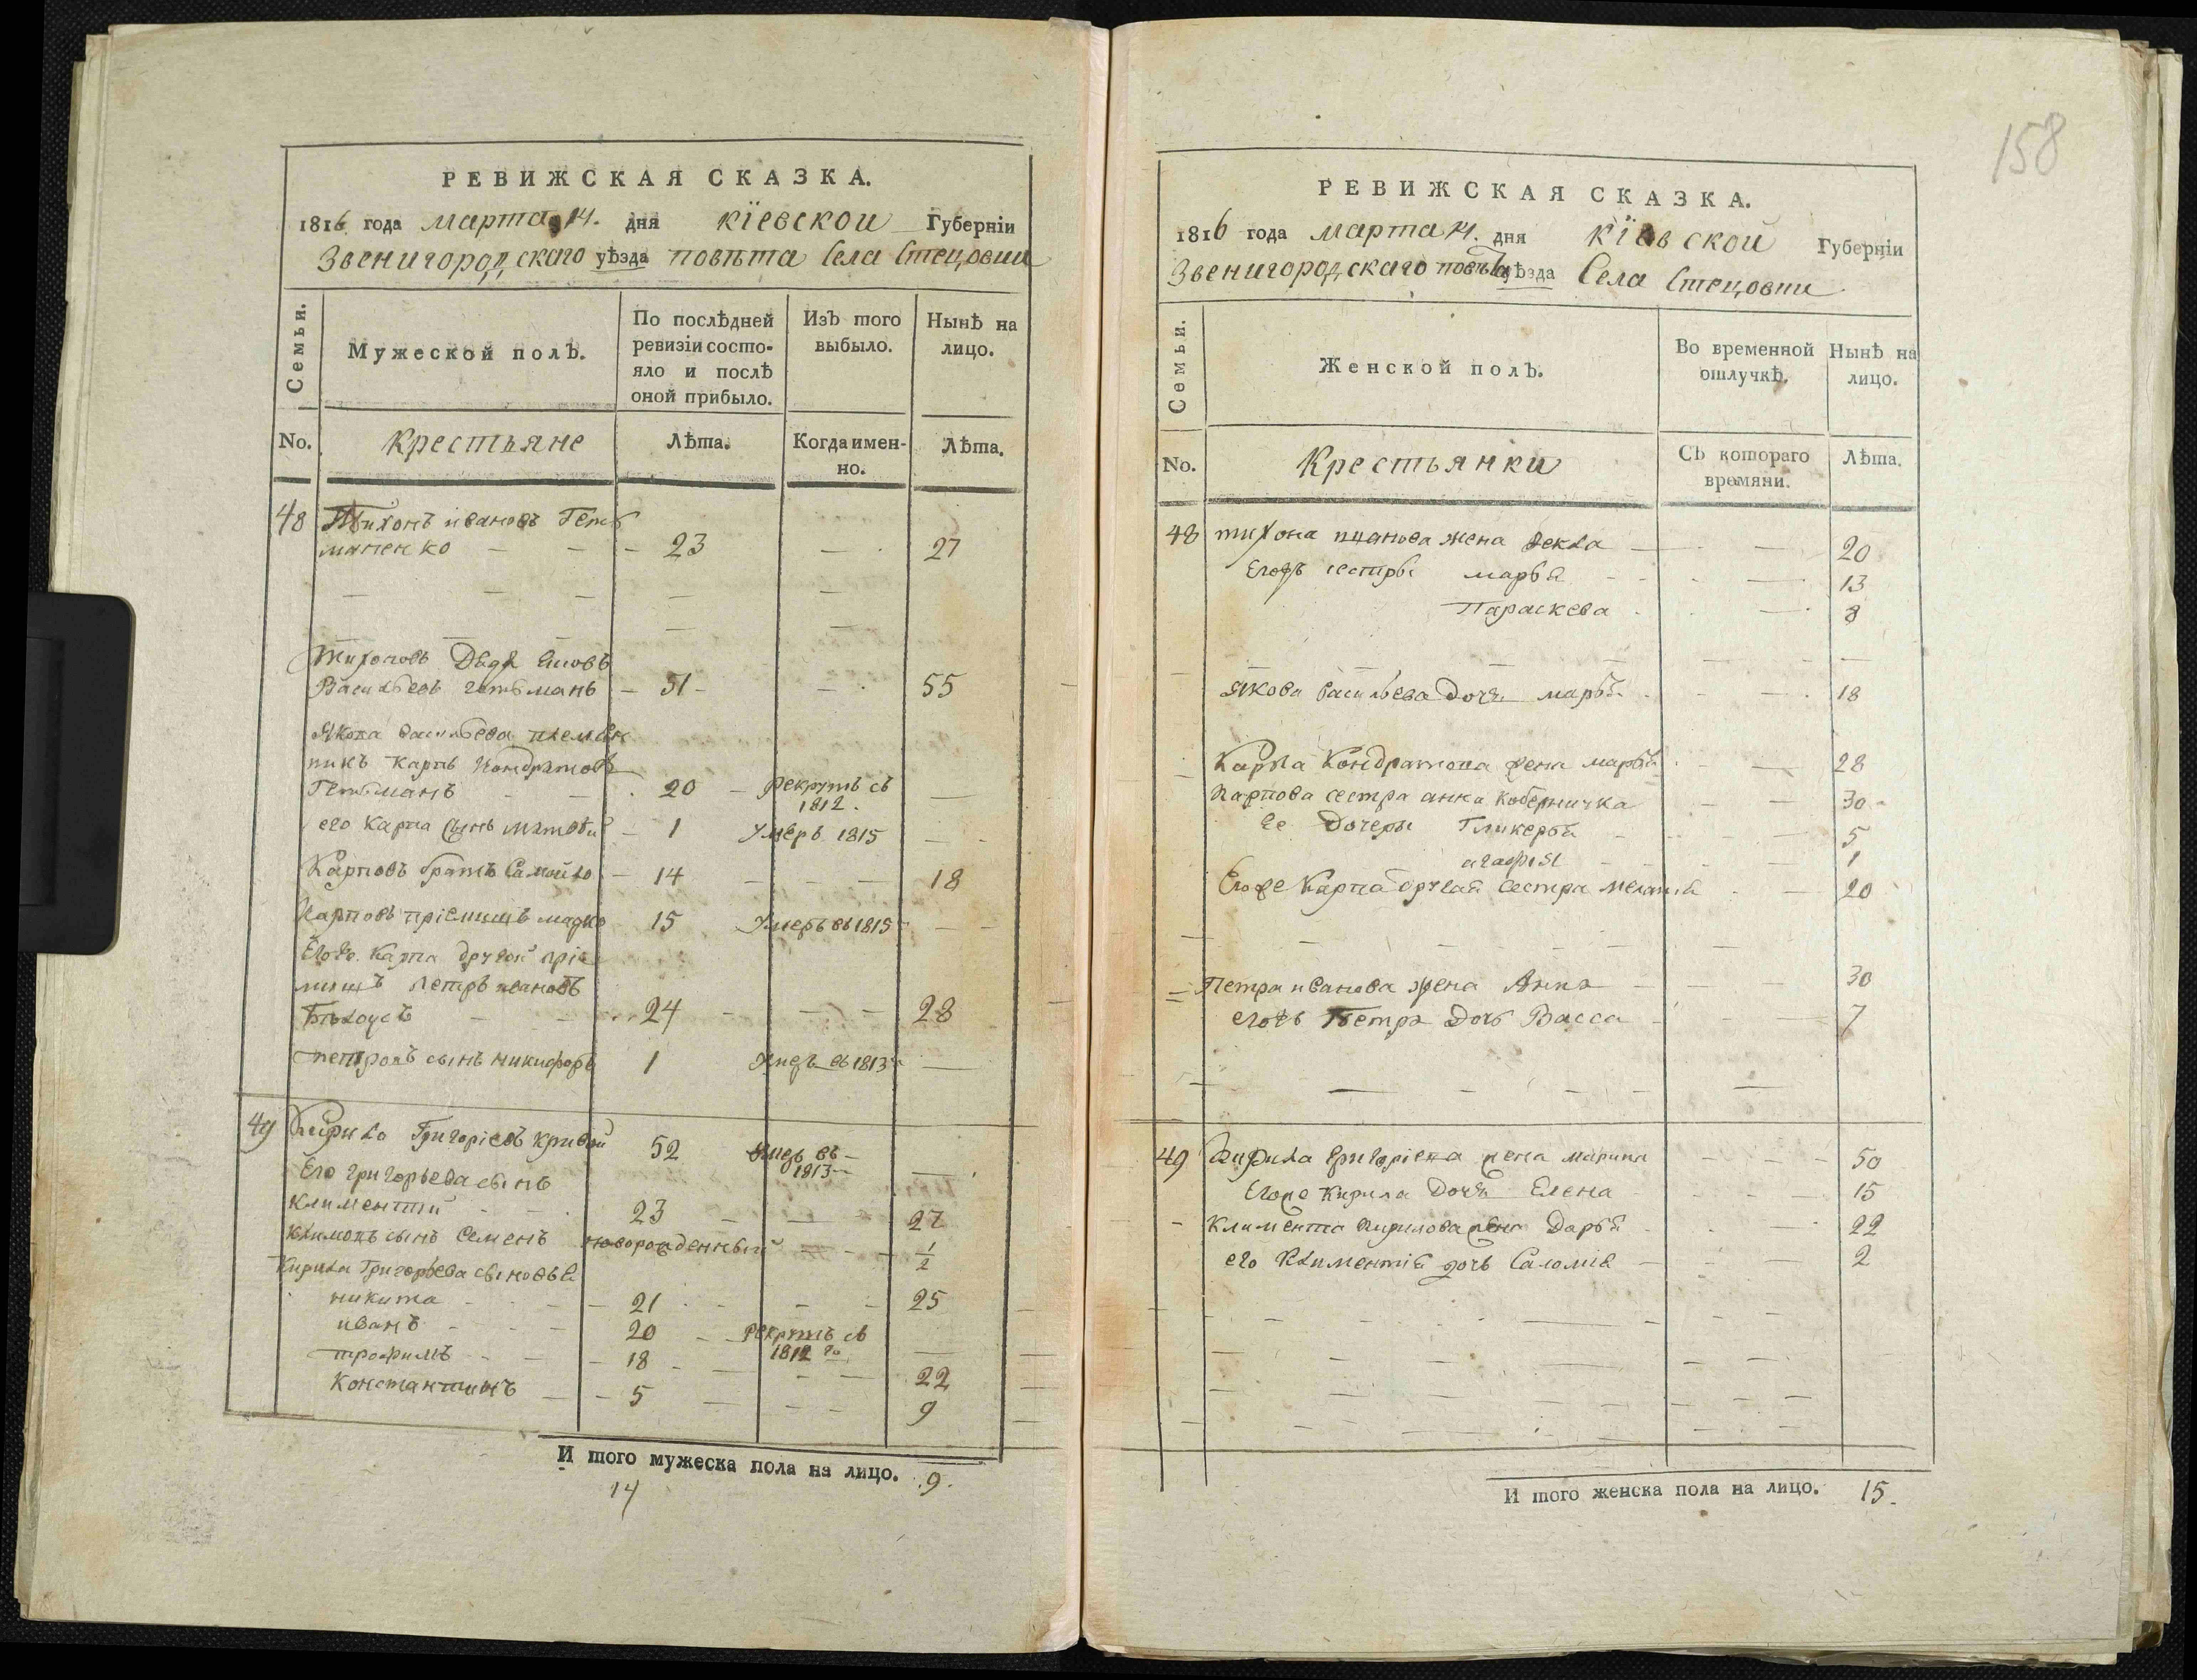 158
РЕВИЖСКАЯ СКАЗКА.
1816 года марта 14. дня кіевской Губерніи
Звенигородскаго уѣзда повѣта Села Стецовки
Семьи.
Мужеской полъ.
По послѣдней ревизіи состояло и послѣ оной прибыло.
Изъ того выбыло.
Нынѣ на лицо.
No. крестьяне Лѣта. Когда именно. Лѣта.
48 Тихонъ ивановъ Геть
маненко — — 23 — 27
Тихоновъ Дядя Яковъ
Васильевъ гетьманъ — 51 — 55
Якова васильева племян
никъ карпъ Кондратовъ
Гетьманъ — 20 — рекрутъ въ 1812. —
его Карпа сынъ матвѣй — 1 Умеръ 1815 —
Карповъ братъ Самойло — 14 — 18
Карповъ пріемишъ марко 15 Умеръ въ 1815 —
Его же Карпа другой пріе
мишъ Петръ ивановъ
Бѣлоусъ — 24 — 28
петровъ сынъ никифоръ 1 Умеръ въ 1813 —
49 Кирило Григоріевъ кривой 52 Умеръ въ 1813 —
Его григорьева сынъ
климентій — 23 — 27
климовъ сынъ Семенъ новорожденный — 1/2
Кирила Григорьева сыновья
никита — 21 — 25
иванъ — 20 — рекрутъ въ 1812 го —
трофимъ — 18 — 22
Константинъ — 5 — 9
И того мужеска пола на лицо. 9.
14
РЕВИЖСКАЯ СКАЗКА.
1816 года марта 14. дня кіевской Губерніи
Звенигородскаго повѣта уѣзда Села Стецовки
Семьи.
Женской полъ.
Во временной отлучкѣ.
Нынѣ на лицо.
No. Крестьянки Съ котораго времяни. Лѣта.
48 тихона иванова жена Фекла — 20
Егожъ сестры марья — 13
Параскева — 8
Якова васильева дочь марья — 18
Карпа Кондратова жена марья — 28
Карпова сестра анна — 30
Ее дочери Гликерья — 5
агафія — 1
Егоже Карпа другая сестра меланья — 20
Петра иванова жена Анна — 30
егожъ Петра дочь Васса — 7
49 Кирила Григоріева жена марина — 50
Егоже Кирила дочь Елена — 15
Климента Кирилова жена Дарья — 22
его Климентія дочь Саломія — 2
И того женска пола на лицо. 15.